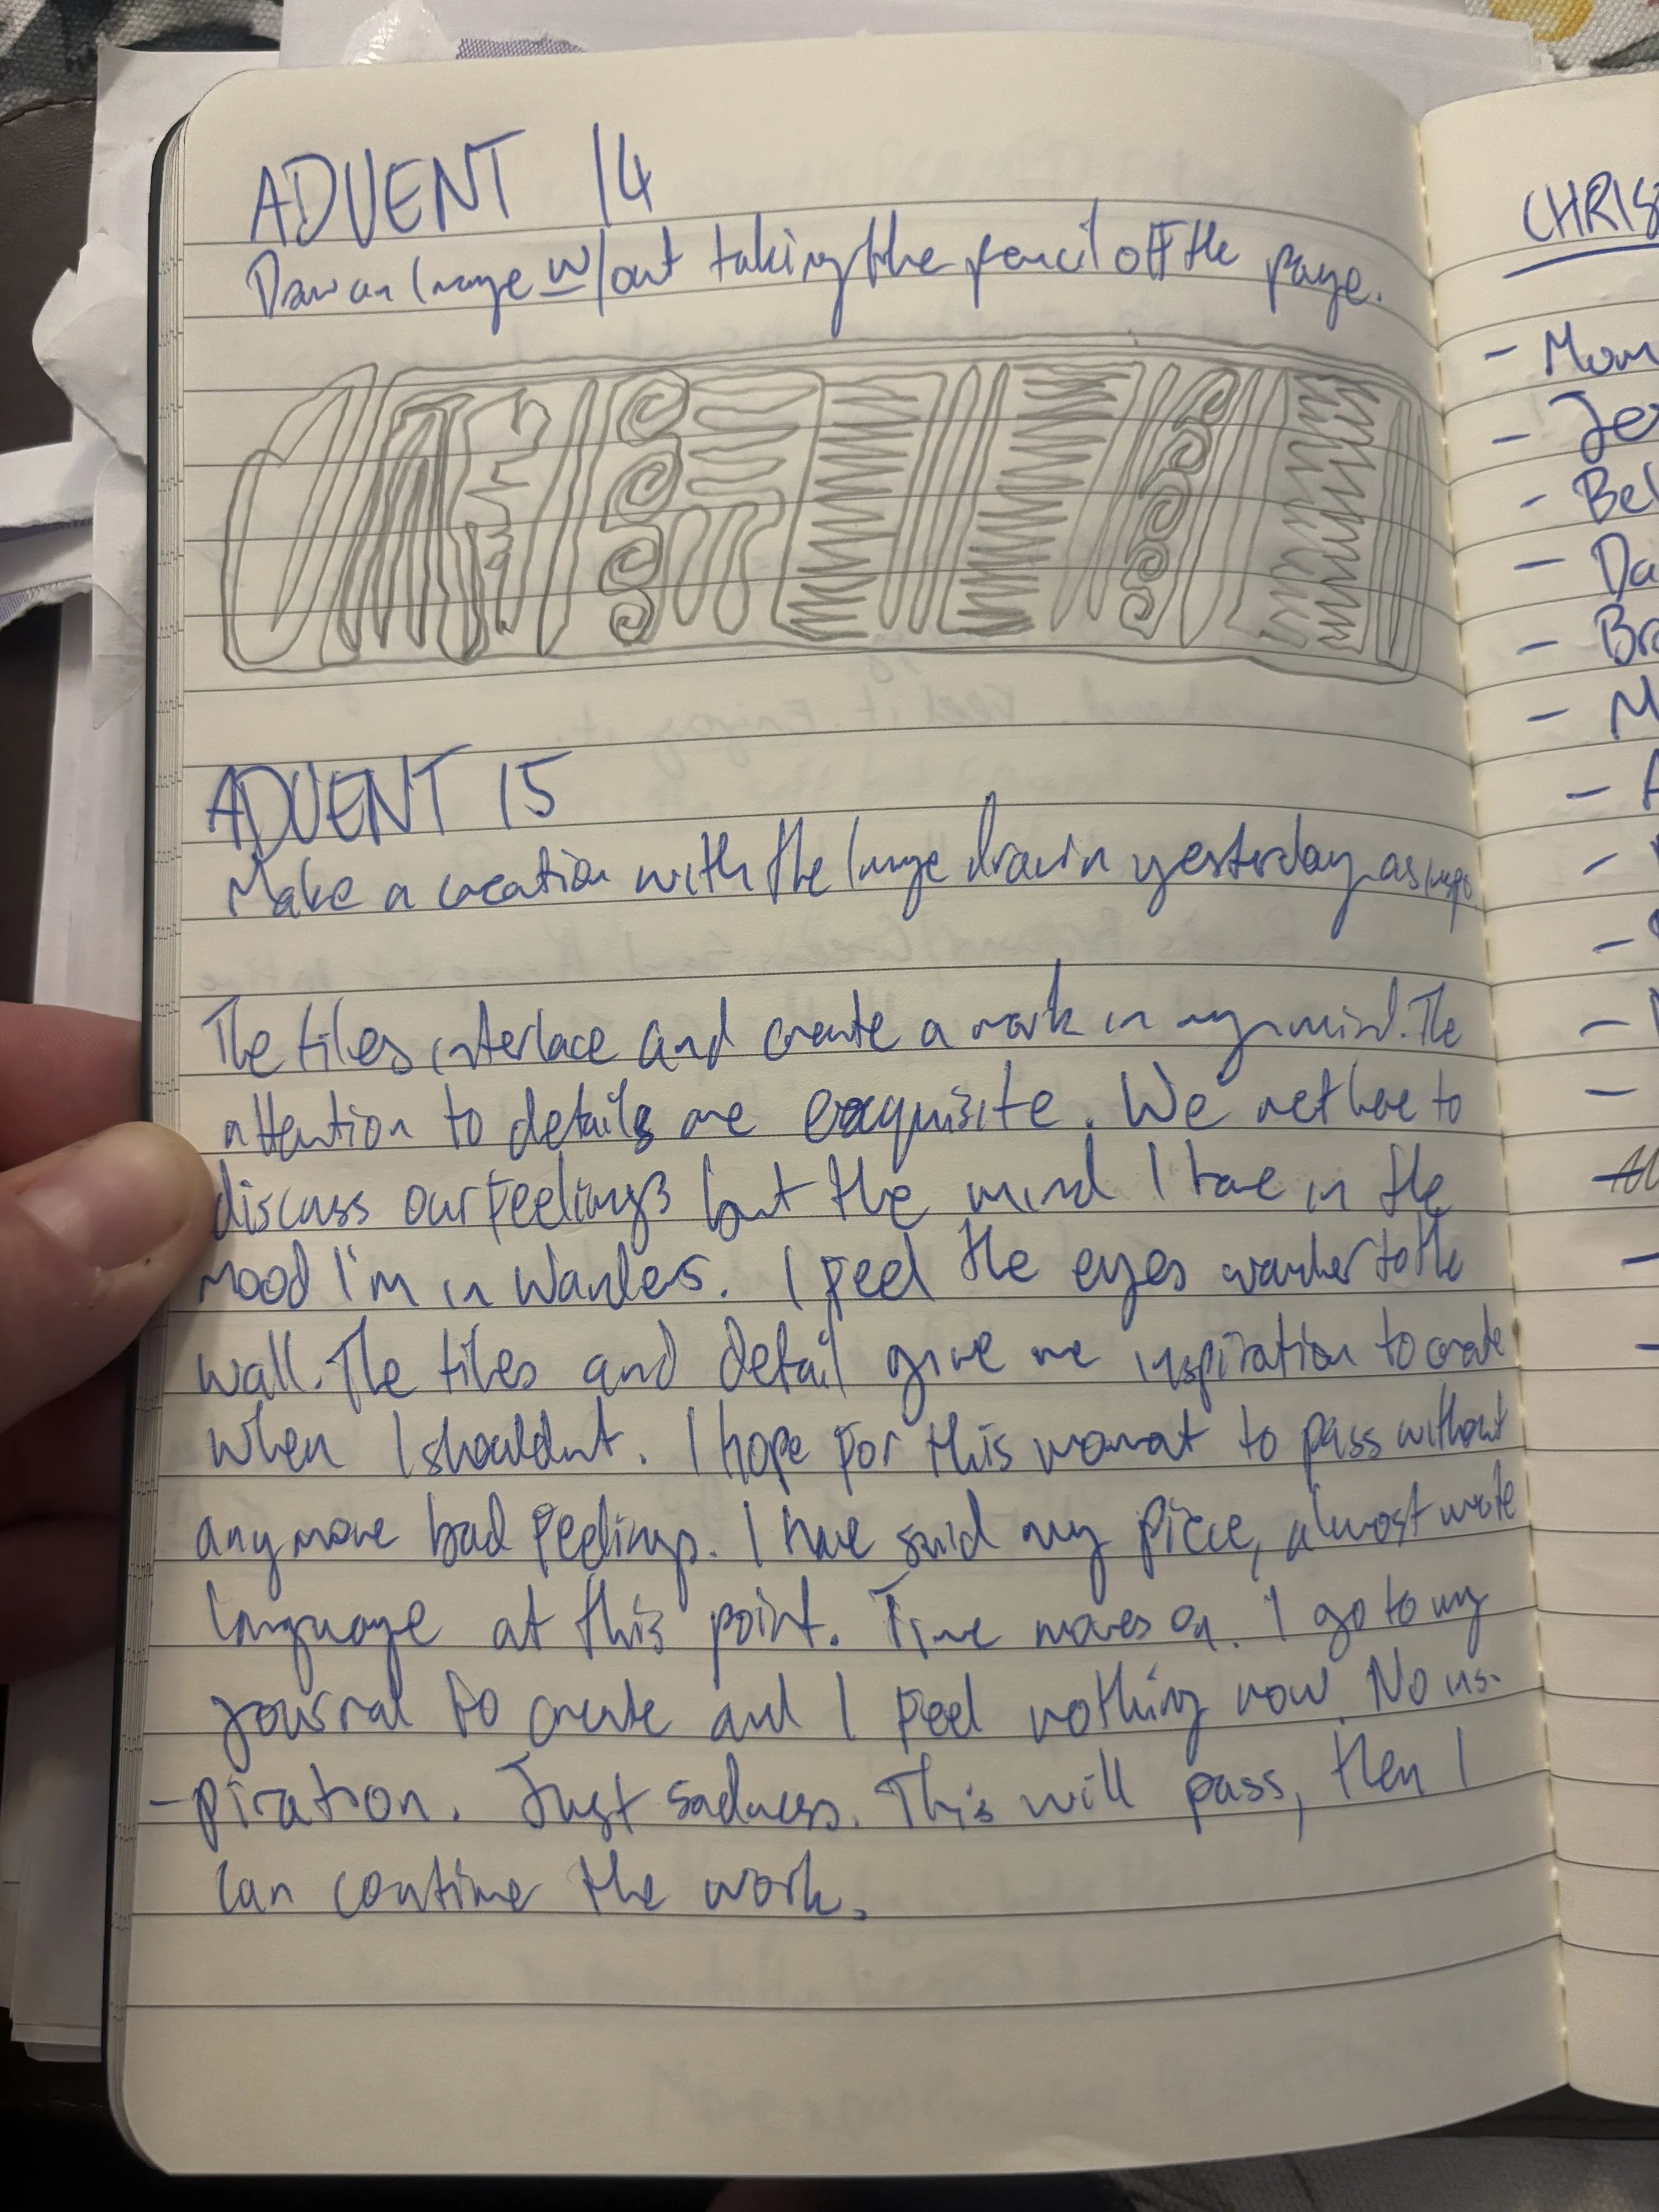 ADVENT 14
Draw an image w/out taking the pencil off the page.
ADVENT 15
Make a creation with the image drawn yesterday as inspo.
The tiles interlace and create a mark in my mind. The
attention to details are exquisite. We met here to
discuss our feelings but the mind I have in the
mood I'm in wanders. I feel the eyes wander to the
wall. The tiles and detail give me inspiration to create
when I shouldnt. I hope for this moment to pass without
anymore bad feelings. I have said my piece, almost
language at this point. Time moves on. I go to my
journal to create and I feel nothing now. No ins-
-piration. Just sadness. This will pass, then I
can continue the work.
CHRIS
- Mom
- Je
- Bel
- Da
- Bro
- M
- A